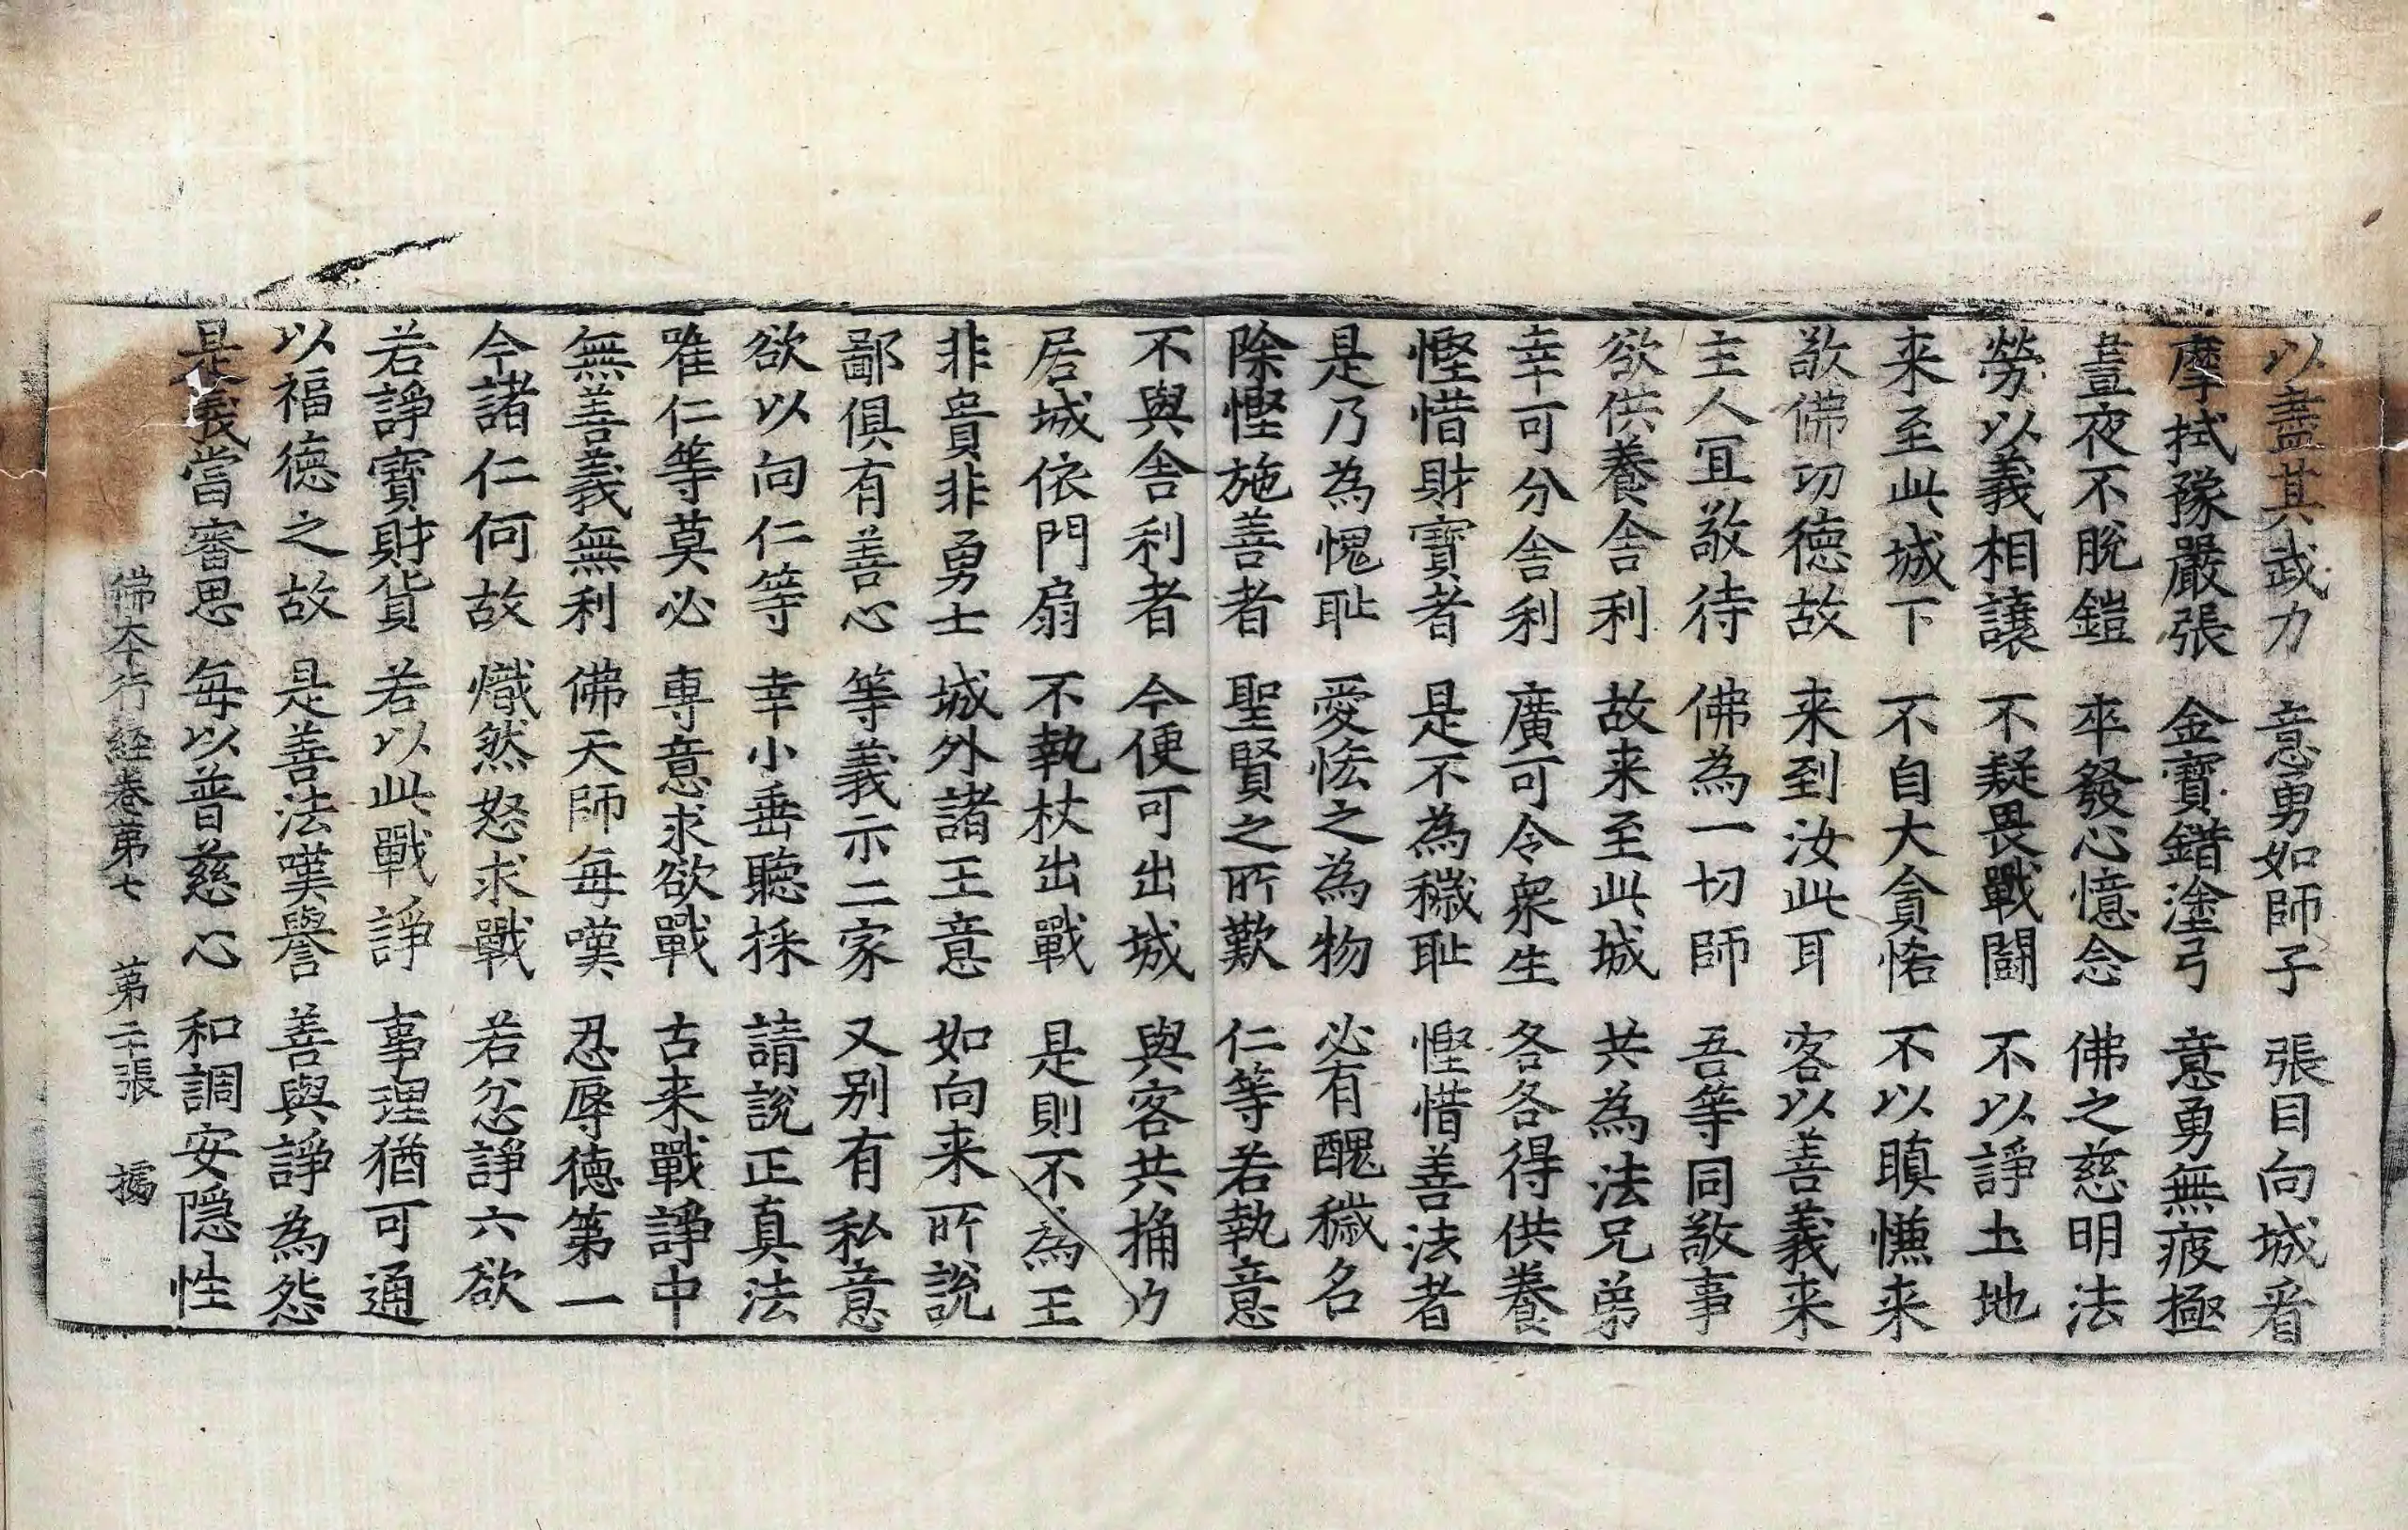 以盡其武力　意勇如師子　張目向城看
摩拭豫嚴張　金寶錯塗弓　意勇無疲極
晝夜不脫鎧　卒發心憶念　佛之慈明法
勞以義相讓　不疑畏戰鬪　不以諍土地
来至此城下　不自大貪悋　不以瞋慊来
敬佛功德故　来到汝此耳　客以善義来
主人宜敬待　佛為一切師　吾等同敬事
欲供養舍利　故来至此城　共為法兄弟
幸可分舍利　廣可令衆生　各各得供養
慳惜財寶者　是不為穢耻　慳惜善法者
是乃為愧耻　愛悋之為物　必有醜穢名
除慳施善者　聖賢之所歎　仁等若執意
不與舍利者　今便可出城　與客共捔力
居城依門扇　不執杖出戰　是則不為王
非貴非勇士　城外諸王意　如向来所說
鄙俱有善心　等義示二家　又別有私意
欲以向仁等　幸小垂聽採　請說正真法
唯仁等莫必　專意求欲戰　古来戰諍中
無善義無利　佛天師每嘆　忍辱德第一
今諸仁何故　熾然怒求戰　若忿諍六欲
若諍寶財貨　若以此戰諍　事理猶可通
以福德之故　是善法嘆譽　善與諍為怨
是義當審思　每以普慈心　和調安隱性
佛本行經卷第七　第二十張　㩲